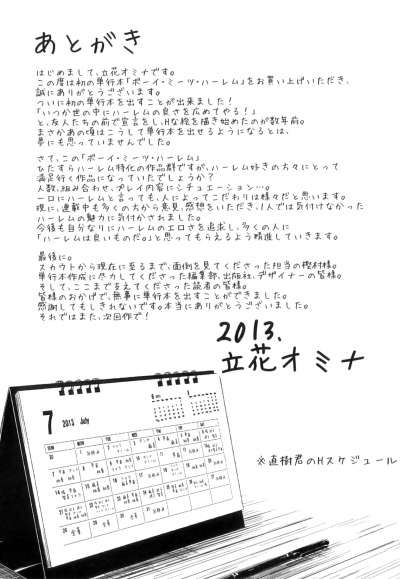 あとがき
はじめまして、立花オミナです。
この度は初の単行本「ボーイ・ミーツ・ハーレム」をお買い上げいただき、
誠にありがとうございます。
ついに初の単行本を出すことが出来ました！
「いつか世の中にハーレムの良さを広めてやる！」
と、友人たちの前で宣言をし、H絵を描き始めたのが数年前。
まさかあの頃はこうして単行本を出せるようになるとは、
夢にも思っていませんでした。
さて、この「ボーイ・ミーツ・ハーレム」
ひたすらハーレム特化の作品群ですが、ハーレム好きの方々にとって
満足行く作品になっていたでしょうか？
人数、組み合わせ、プレイ内容にシチュエーション…。
一口にハーレムと言っても、人によってこだわりは様々だと思います。
現に、連載中も多くの方から意見、感想をいただき、1人では気付けなかった
ハーレムの魅力に気付かされました。
今後も自分なりにハーレムのエロさを追求し、多くの人に
「ハーレムは良いものだ。」と思ってもらえるよう精進していきます。
最後に。
スカウトから現在に至るまで、面倒を見てくださった担当の樫村様。
単行本作成に尽力してくださった編集部、出版社、デザイナーの皆様。
そして、ここまで支えてくださった読者の皆様。
皆様のおかげで、無事に単行本を出すことができました。
感謝してもしきれないです。本当にありがとうございました。
それではまた、次回作で！
2013.
立花オミナ
7 2013 July
SUN MON TUE WED THU FRI SAT
※直樹君のHスケジュール